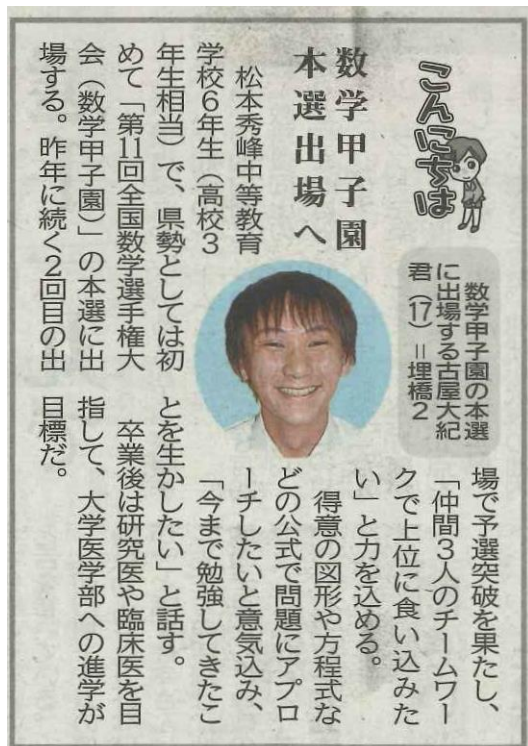 こんにちは
数学甲子園の本選
に出場する古屋大紀
君（17）＝埋橋2
数学甲子園
本選出場へ
松本秀峰中等教育
学校６年生（高校３
年生相当）で、県勢としては初
めて「第11回全国数学選手権大
会（数学甲子園）」の本選に出
場する。昨年に続く２回目の出
場で予選突破を果たし、
「仲間３人のチームワー
クで上位に食い込みた
い」と力を込める。
得意の図形や方程式な
どの公式で問題にアプロ
ーチしたいと意気込み、
「今まで勉強してきたこ
とを生かしたい」と話す。
卒業後は研究医や臨床医を目
指して、大学医学部への進学が
目標だ。